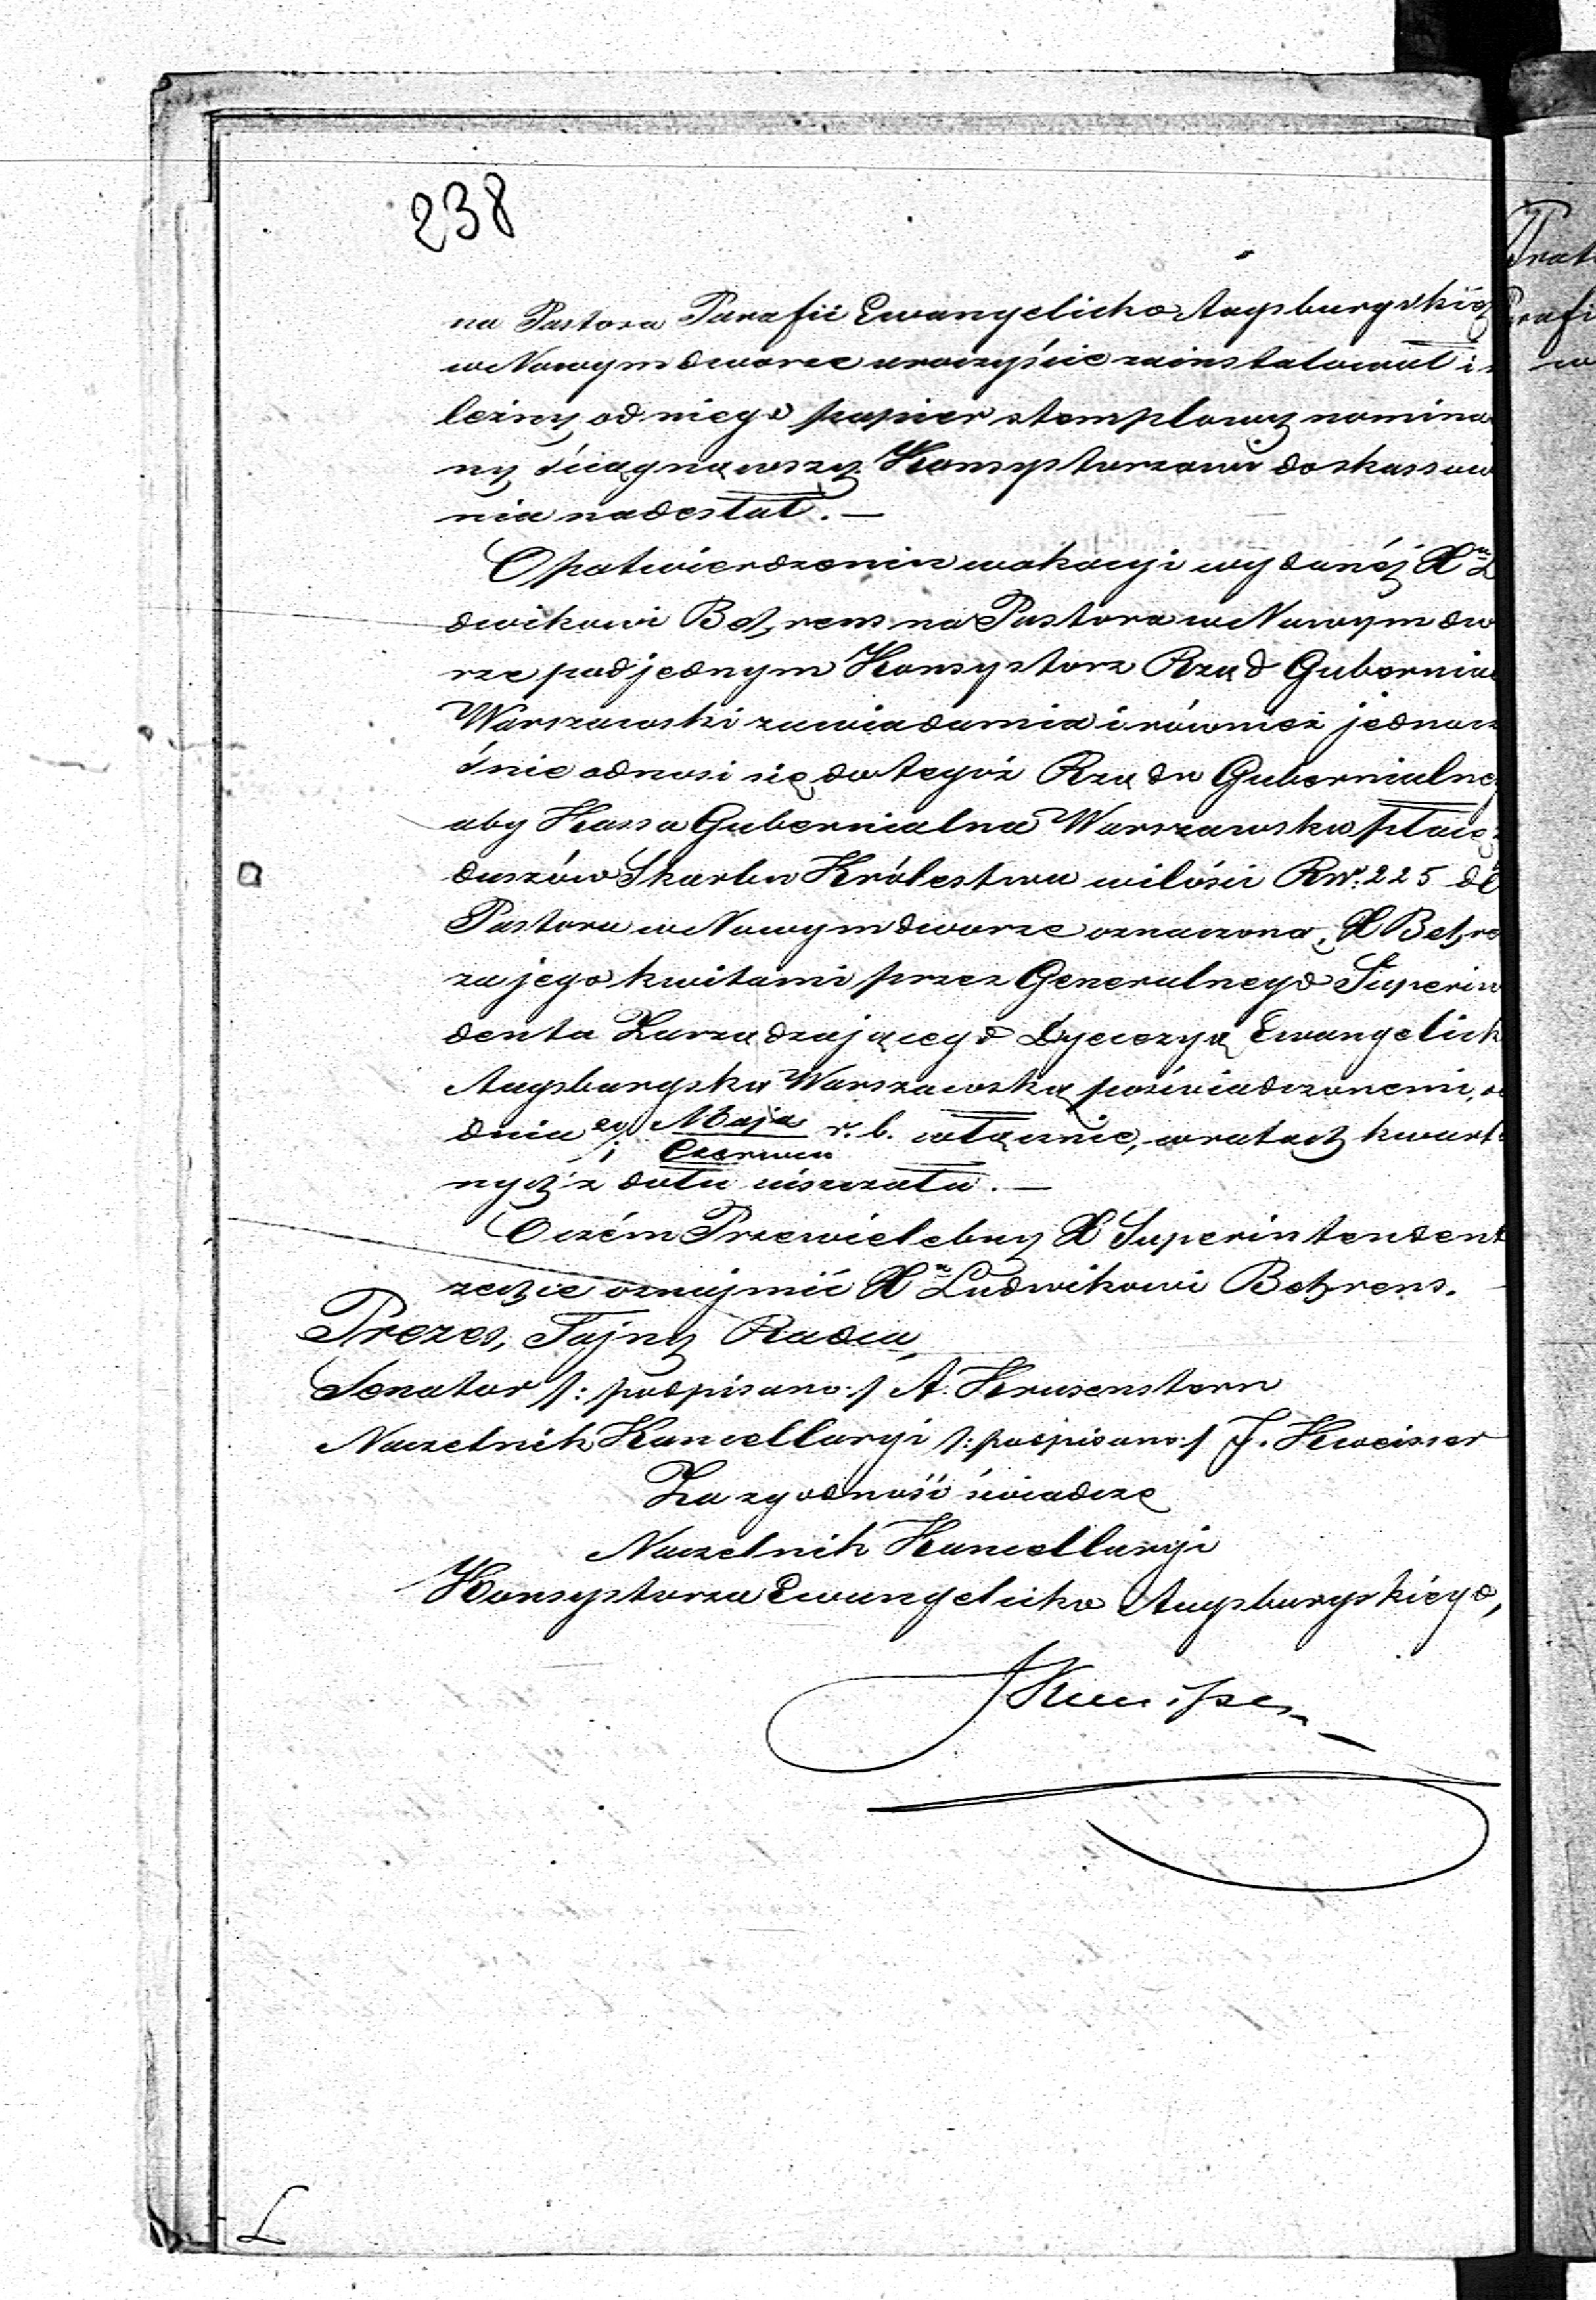 238
na Pastora Parafii Ewangelicko Augsburgskiej
w Nowymdworze uroczyście zainstalował i
leżny od niego papier stemplowy nomina
ny ściągnąwszy Konsystorzowi do skassowa
nia nadesłał. —
O potwierdzeniu wokacyi wydanéj X
dwikowi Behrens na Pastora w Nowymdwo
rze pod jednym Konsystorz Rząd Gubernial
Warszawski zawiadamia i również jednocz
śnie odnosi się do tegoż Rządu Gubernialne
aby Kassa Gubernialna Warszawska płacę
duszów Skarbu Królestwa w ilości Rsr. 225 dla
Pastora w Nowymdworze oznaczoną, X Behre
za jego kwitami przez Generalnego Superin
denta Zarządzającego Dyecezyą Ewangelick
Augsburgską Warszawską poświadczonemi, o
dnia 20/1 Maja/Czerwca r. b. włącznie, w ratach kwart
nych z dołu uiszczała. —
O czém Przewielebny X Superintendent
zechce oznajmić X Ludwikowi Behrens.
Prezes, Tajny Radca,
Senator /: podpisano :/ A. Krusenstern
Naczelnik Kancellaryi /: podpisano :/ J. Kweisser
Za zgodność świadczę
Naczelnik Kancellaryi
Konsystorza Ewangelicko Augsburgskiego,